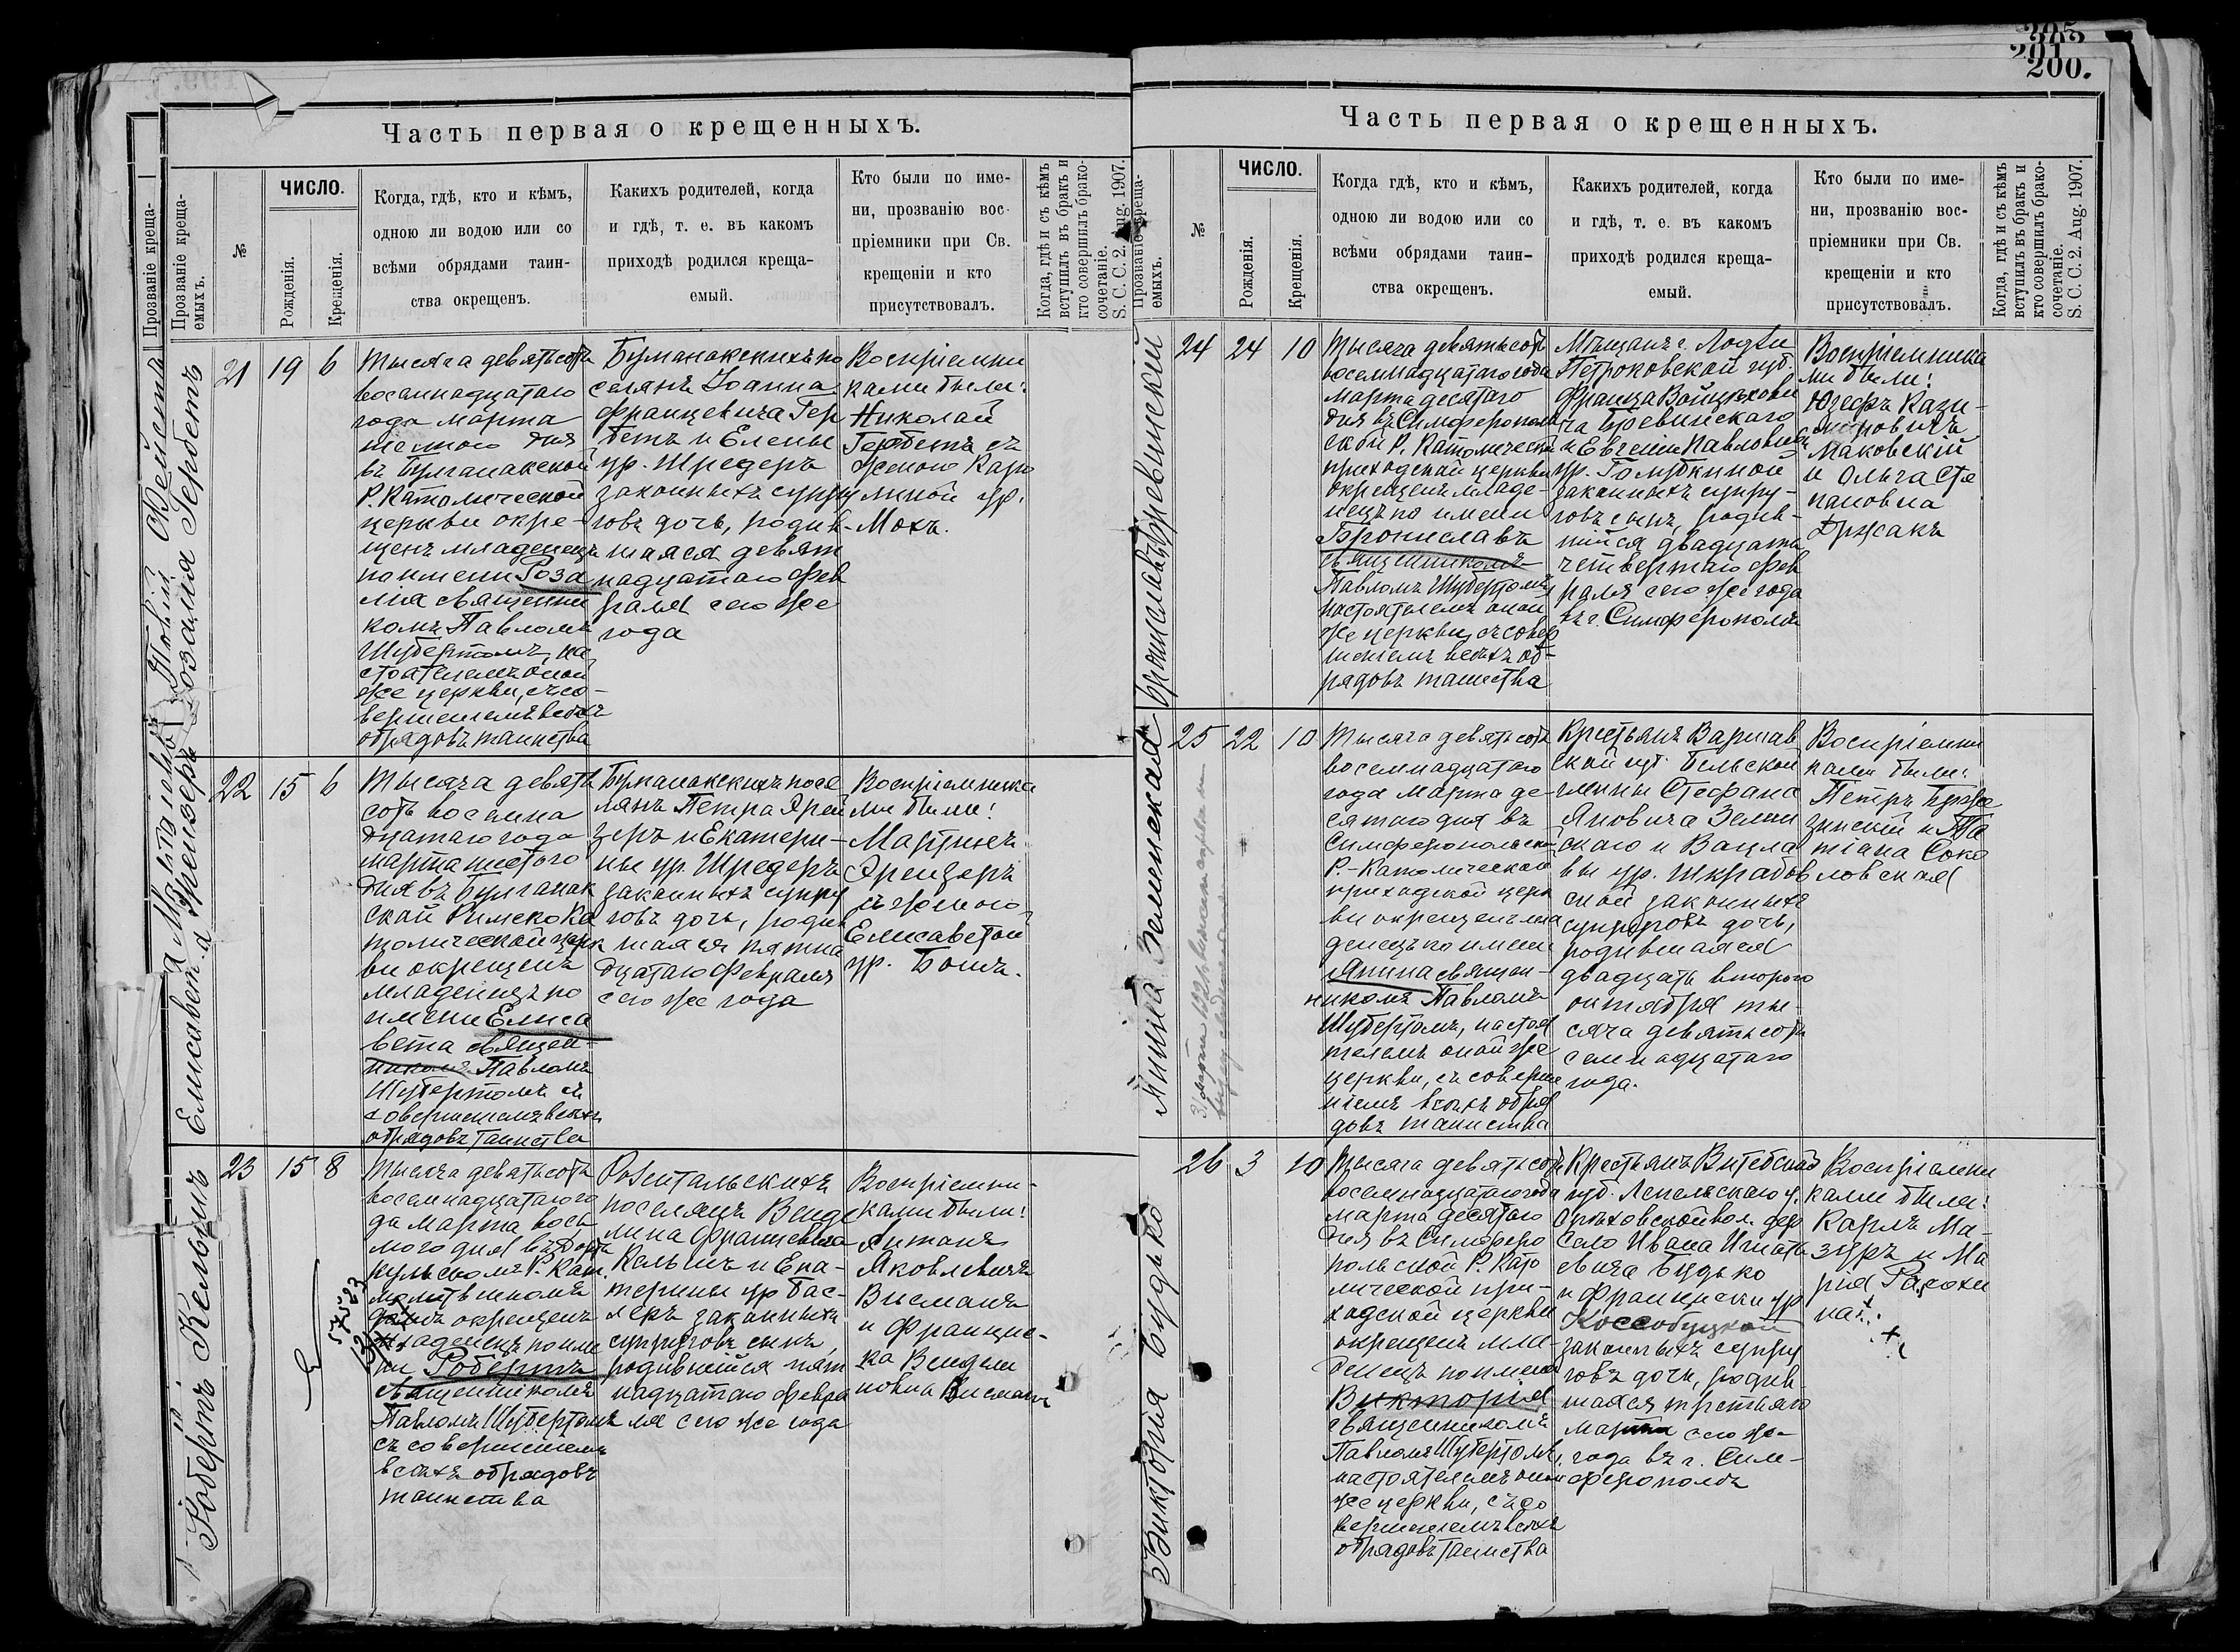 305
201.
200.
Часть первая о крещенныхъ.
Прозваніе креща-
Прозваніе креща-
емыхъ.
№
ЧИСЛО.
Рожденія.
Крещенія.
Когда, гдѣ, кто и кѣмъ,
одною ли водою или со
всѣми обрядами таин-
ства окрещенъ.
Какихъ родителей, когда
и гдѣ, т. е. въ какомъ
приходѣ родился креща-
емый.
Кто были по име-
ни, прозванію вос-
пріемники при Св.
крещеніи и кто
присутствовалъ.
Когда, гдѣ и съ кѣмъ
вступилъ въ бракъ и
кто совершилъ брако-
сочетаніе.
S. C. C. 2. Aug. 1907.
Розалія Гербетъ
21
19
6
Тысяча девятьсотъ
восемнадцатаго
года марта
шестого дня
въ Булганакской
Р. Католической
церкви окре-
щенъ младенецъ
по имени Роза
лия священни
комъ Павломъ
Шубертомъ, на
стоятелемъ оной
же церкви, съ со-
вершеніемъ всѣхъ
обрядовъ таинства
Булганакскихъ по
селянъ Іоанна
Францевича Гер
бетъ и Елены
ур. Шредеръ
законныхъ супру
говъ дочь, родив-
шаяся девят
надцатаго фев
раля сего же
года
Воспріемни
ками были:
Николай
Гербетъ съ
женою Каро
линой ур.
Мохъ.
Елисавета
22
15
6
Тысяча девять
сотъ восемна
дцатаго года
марта шестого
дня въ Булганак
ской Римско Ка
толической церк
ви окрещенъ
младенецъ по
имени Елиса
вета священ-
никомъ Павломъ
Шубертомъ съ
совершеніемъ всѣхъ
обрядовъ таинства
Булганакскихъ посе
лянъ Петра Арен
церъ и Екатери-
ны ур. Шредеръ
законныхъ супру
говъ дочь, родив
шаяся пятна
дцатаго февраля
сего же года
Воспріемника
ми были:
Мартинъ
Аренцеръ
съ женою
Елисаветой
ур. Бошъ.
Робертъ Кельшъ
23
15
8
57523
Тысяча девятьсотъ
восемнадцатаго го
да марта вось
мого дня въ
Р. Кат.
молитвенномъ
домѣ окрещенъ
младенецъ по име
ни Робертъ
священникомъ
Павломъ Шубертомъ
съ совершеніемъ
всѣхъ обрядовъ
таинства
Розентальскихъ
поселянъ Венде
лина Францевича
Кельшъ и Ека-
терины ур Бас-
леръ законныхъ
супруговъ сынъ,
родившійся пят
надцатаго февра
ля сего же года
Воспріемни-
ками были:
Антонъ
Яковлевичъ
Висманъ
и Францис-
ка Вендели
новна Висманъ
Часть первая о крещенныхъ.
Прозваніе креща-
емыхъ.
№
ЧИСЛО.
Рожденія.
Крещенія.
Когда гдѣ, кто и кѣмъ,
одною ли водою или со
всѣми обрядами таин-
ства окрещенъ.
Какихъ родителей, когда
и гдѣ, т. е. въ какомъ
приходѣ родился креща-
емый.
Кто были по име-
ни, прозванію вос-
пріемники при Св.
крещеніи и кто
присутствовалъ.
Когда, гдѣ и съ кѣмъ
вступилъ въ бракъ и
кто совершилъ брако-
сочетаніе.
S. C. C. 2. Aug. 1907.
Брониславъ Бревинскій
24
24
10
Тысяча девятьсотъ
восемнадцатаго года
марта десятаго
дня въ Симферополь
ской Р. Католической
приходской церкви
окрещенъ младе-
нецъ по имени
Брониславъ
священникомъ
Павломъ Шубертомъ
настоятелемъ оной
же церкви, съ совер
шеніемъ всѣхъ об-
рядовъ таинства
Мѣщанъ г. Лодзи
Петроковской губ.
Франца Войцѣхови
ча Бревинскаго
и Евгеніи Павловны
ур. Голубкиной
законныхъ супру-
говъ сынъ, родив-
шійся двадцать
четвертаго фев
раля сего же года
въ г. Симферополѣ
Воспріемника
ми были:
Юзефъ Кази-
мировичъ
Маковскій
и Ольга Сте
пановна
Држакъ
Янина Земенская
25
22
10
Тысяча девятьсотъ
восемнадцатаго
года марта де-
сятаго дня въ
Симферопольской
Р.-Католической
приходской церк
ви окрещенъ мла
денецъ по имени
Янина священ-
никомъ Павломъ
Шубертомъ, настоя
телемъ оной же
церкви, съ соверше
ніемъ всѣхъ обря
довъ таинства
Крестьянъ Варшав
ской губ. Бельской
гмины Стефана
Яновича Земен
скаго и Вацла
вы ур. Шкрабов
ской законныхъ
супруговъ дочь,
родившаяся
двадцать второго
октября ты-
сяча девятьсотъ
семнадцатаго
года.
Воспріемни
ками были:
Петръ Бузже
зинскій и Та
тіана Соко
ловская
Викторія Будько
26
3
10
Тысяча девятьсотъ
восемнадцатаго года
марта десятаго
дня въ Симферо
польской Р. Като
лической при-
ходской церкви
окрещенъ мла-
денецъ по имени
Викторія
священникомъ
Павломъ Шубертомъ,
настоятелемъ оной
же церкви, съ со
вершеніемъ всѣхъ
обрядовъ таинства
Крестьянъ Витебской
губ. Лепельскаго у.
вол. дер
Село Ивана Игнать
евича Будько
и Франциски ур
Коссобуцкой
законныхъ супру
говъ дочь, родив
шаяся третьяго
марта сего же
года въ г. Сим-
ферополѣ
Воспріемни
ками были:
Карлъ Ма-
зуръ и Ма
рія Расохи
на